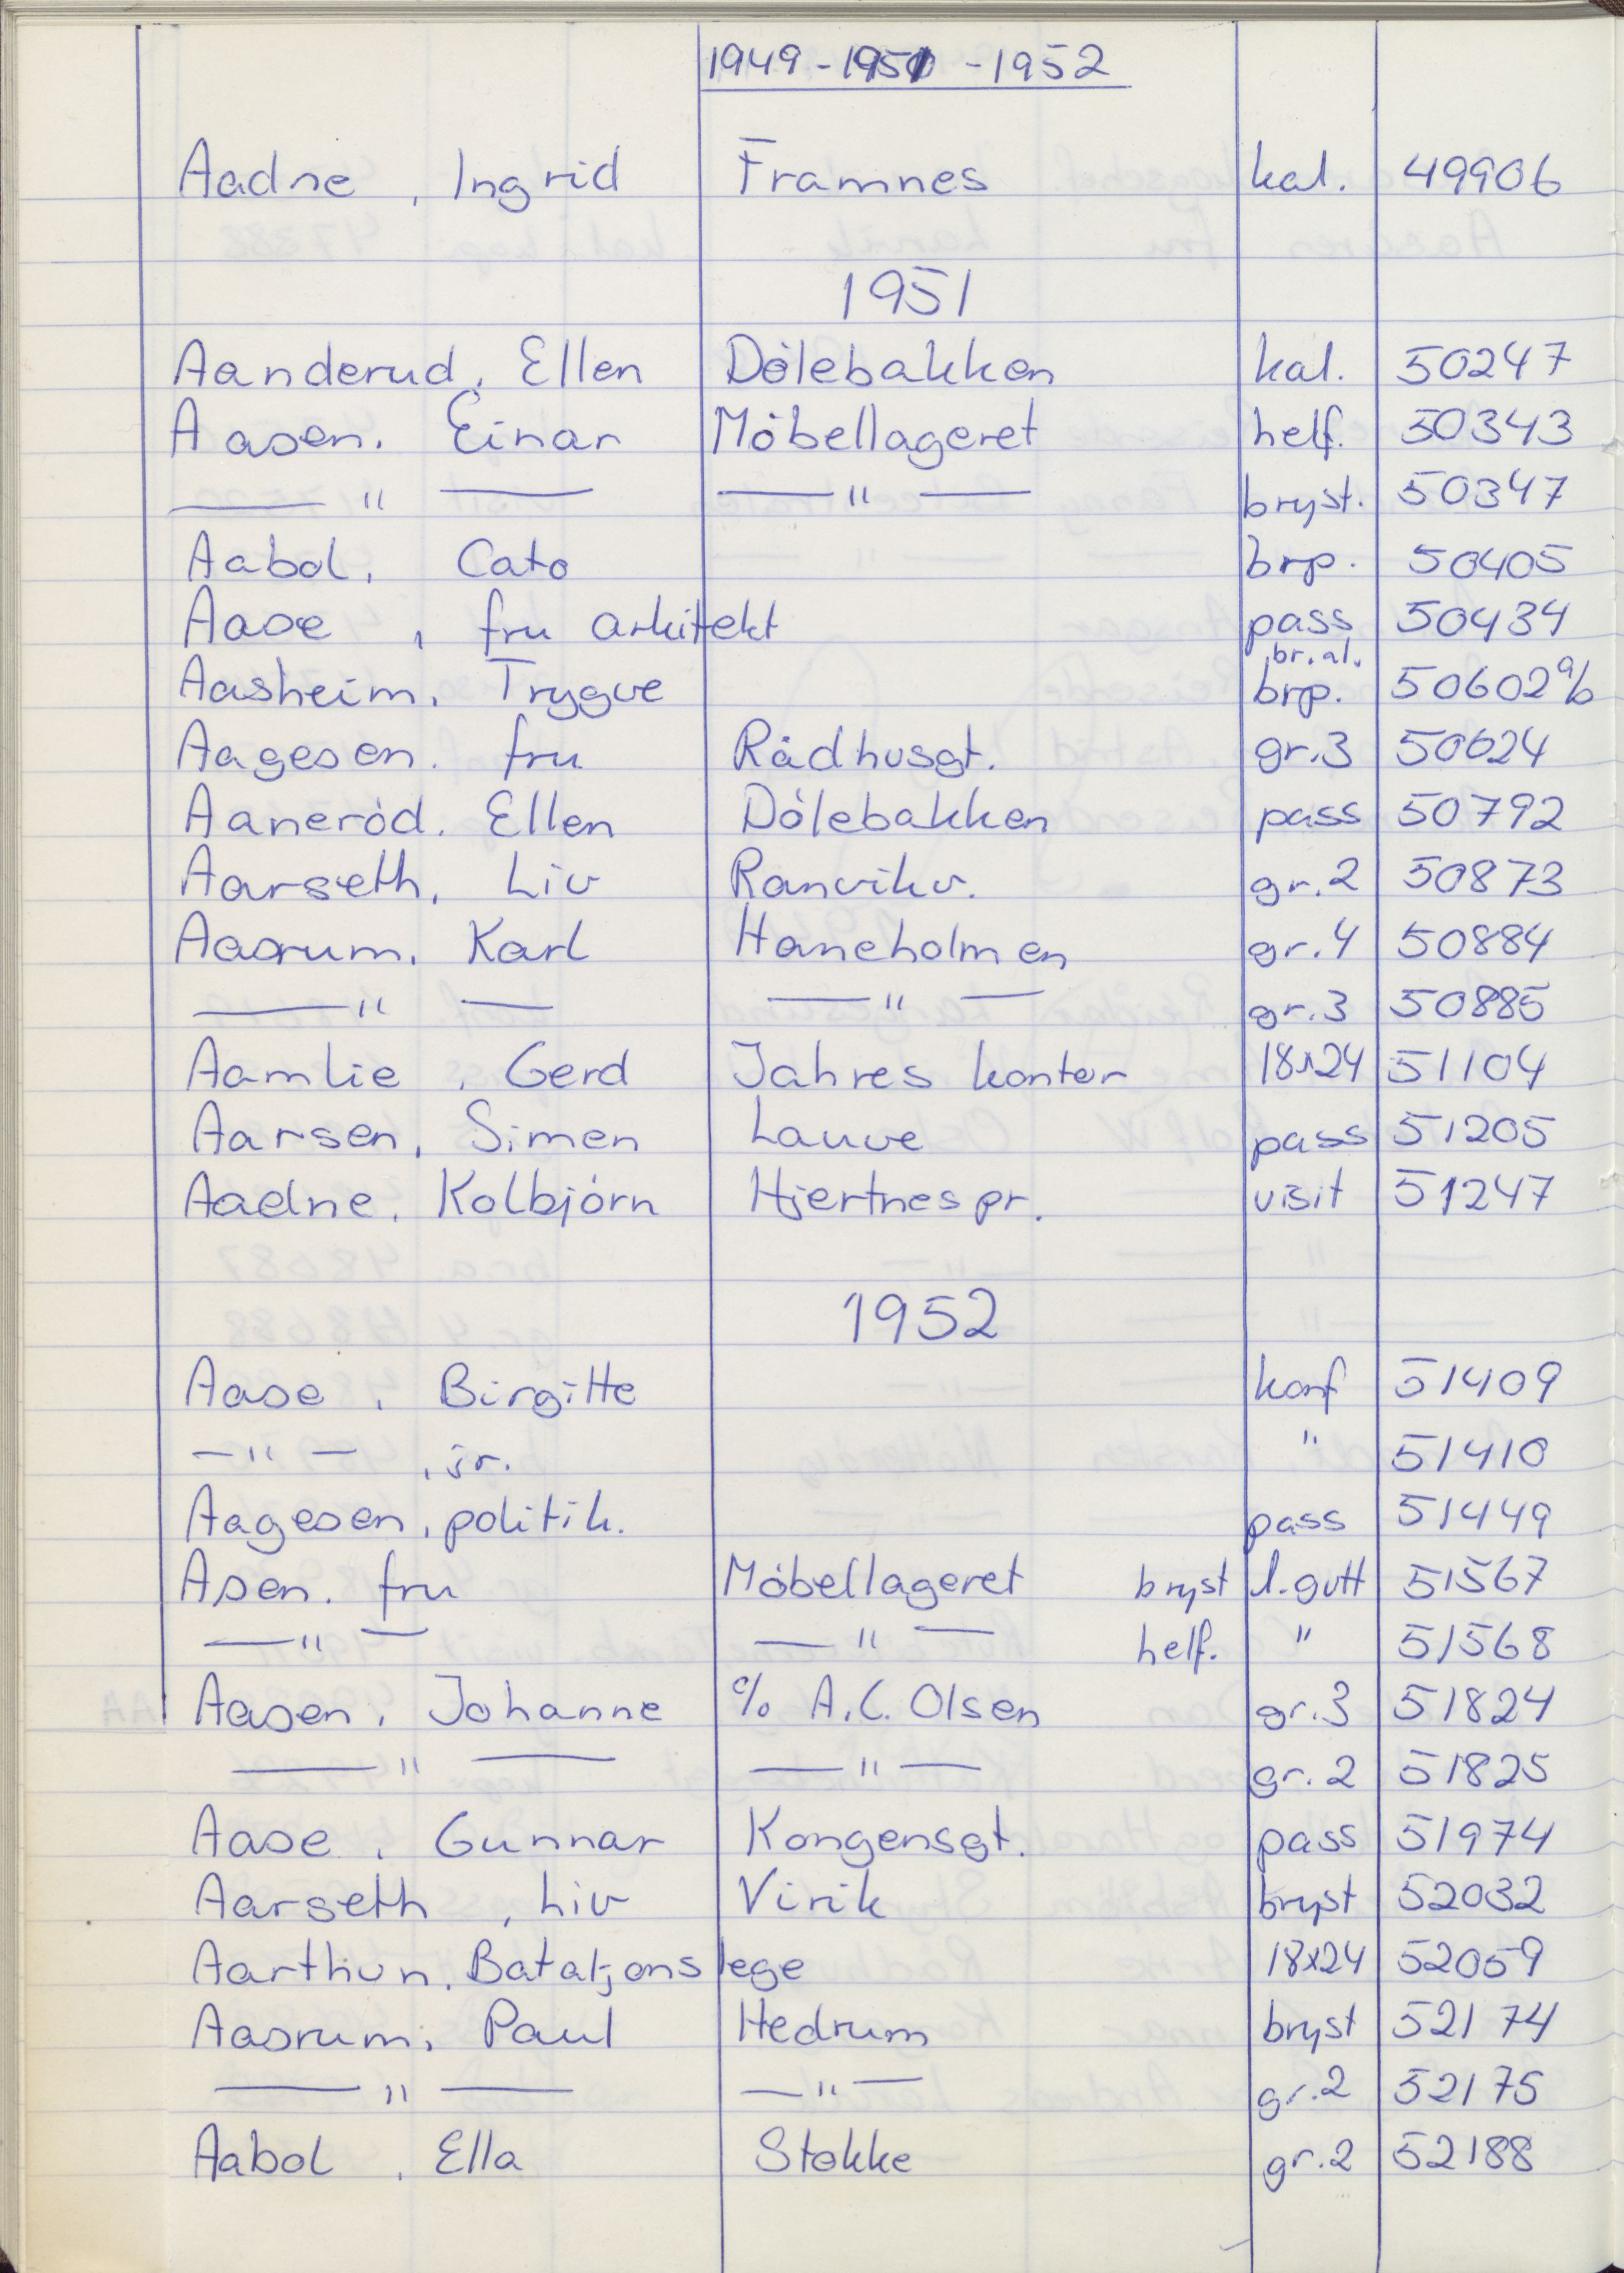 1949 - 1951 - 1952
Aadne, Ingrid Framnes kal. 49906
1951
Aanderud, Ellen Dölebakken kal. 50247
Aasen. Einar Möbellageret helf. 50343
— " — — " — bryst. 50347
Aabol, Cato brp. 50405
Aase, fru arkitekt pass 50434
Aasheim, Trygve br.al. brp. 50602 a/b
Aagesen. fru Rådhusgt. gr.3 50624
Aaneröd. Ellen Dölebakken pass 50792
Aarseth, Liv Ranvikv. gr.2 50873
Aasrum, Karl Haneholmen gr.4 50884
— " — — " — gr.3 50885
Aamlie, Gerd Jahres kontor 18x24 51104
Aarsen, Simen Lauve pass 51205
Aadne, Kolbjörn Hjertnespr. visit 51247
1952
Aase, Birgitte konf 51409
— " —, sr. " 51410
Aagesen, politik. pass 51449
Asen. fru Möbellageret bryst l.gutt 51567
— " — — " — helf. " 51568
Aasen, Johanne c/o A.C. Olsen gr.3 51824
— " — — " — gr.2 51825
Aase, Gunnar Kongensgt. pass 51974
Aarseth, Liv Virik bryst 52032
Aarthun, Bataljonslege 18x24 52059
Aasrum, Paul Hedrum bryst 52174
— " — — " — gr.2 52175
Aabol, Ella Stokke gr.2 52188